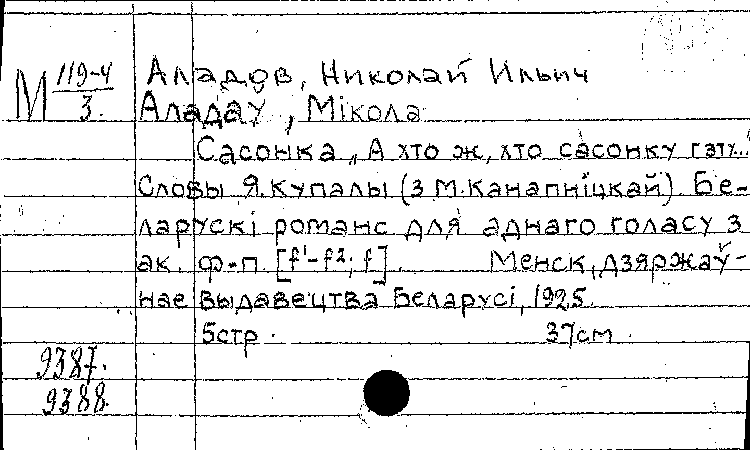 М 119-4/3.
Аладов, Николай Ильич
Аладаў, Мікола
Сасонка „А хто ж, хто сасонку гэту..."
Словы Я.Купалы (з М.Канапніцкай). Бе-
ларускі романс для аднаго голасу з
ак. ф-п. [f¹-f²; f]. Менск, дзяржаў-
нае выдавецтва Беларусі, 1925.
5стр. 37см.
9387.
9388.